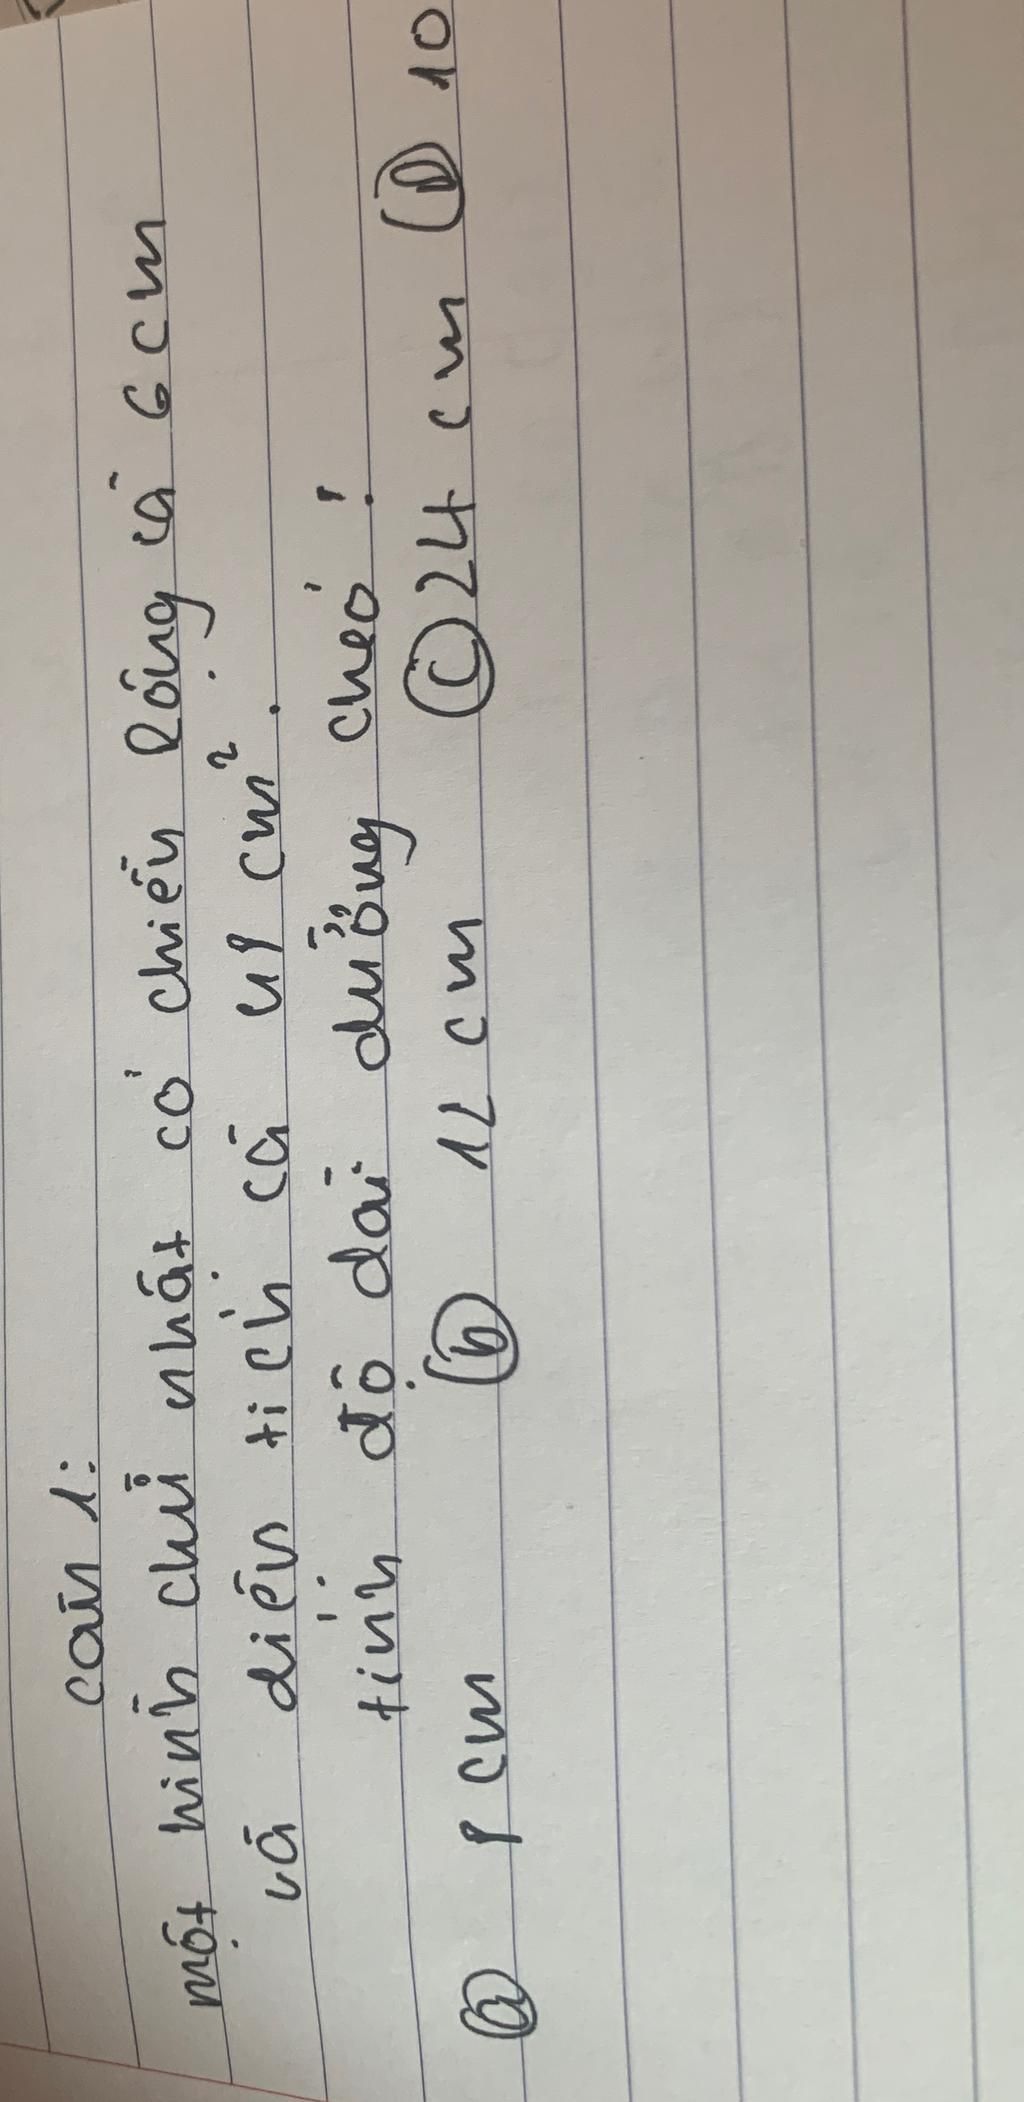 câu 1:
một hình chữ nhật có chiều rộng là 6 cm
và diện tích là 48 cm².
tính độ dài đường chéo!
(a) 8 cm (b) 12 cm (c) 24 cm (D) 10